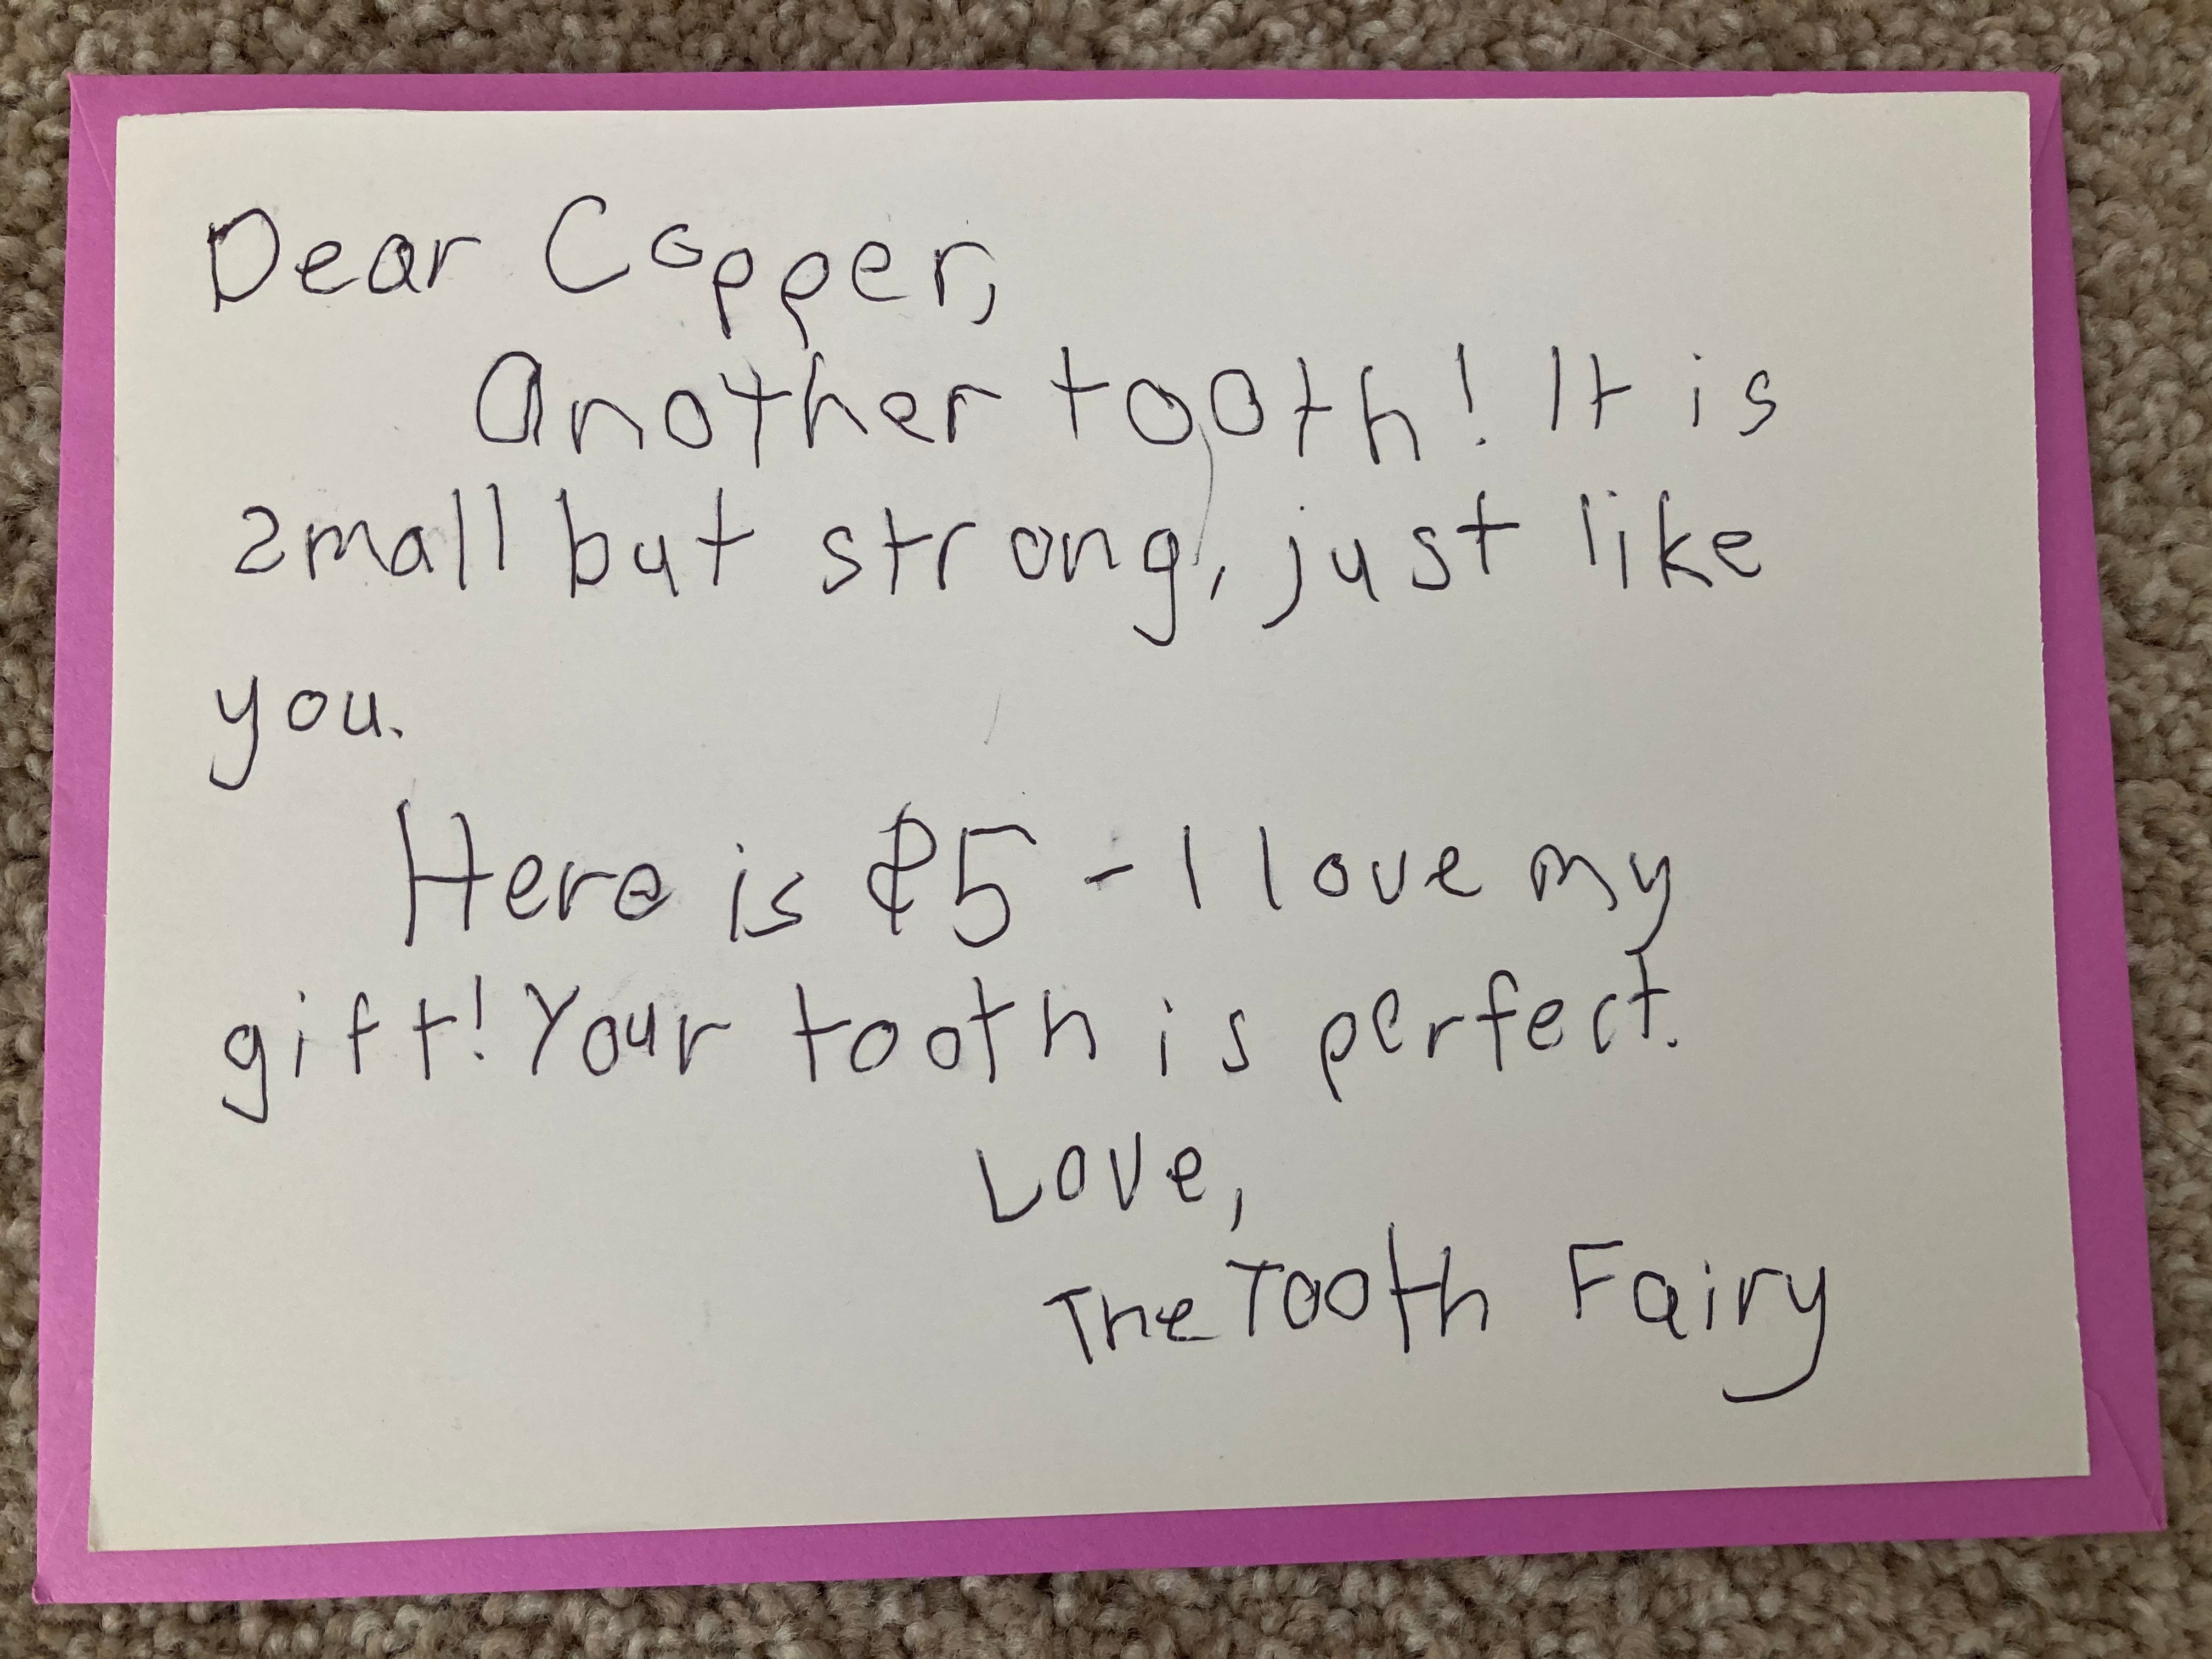 Dear Copper,
Another tooth! It is
small but strong, just like
you.
Here is $5 - I love my
gift! Your tooth is perfect.
Love,
The Tooth Fairy